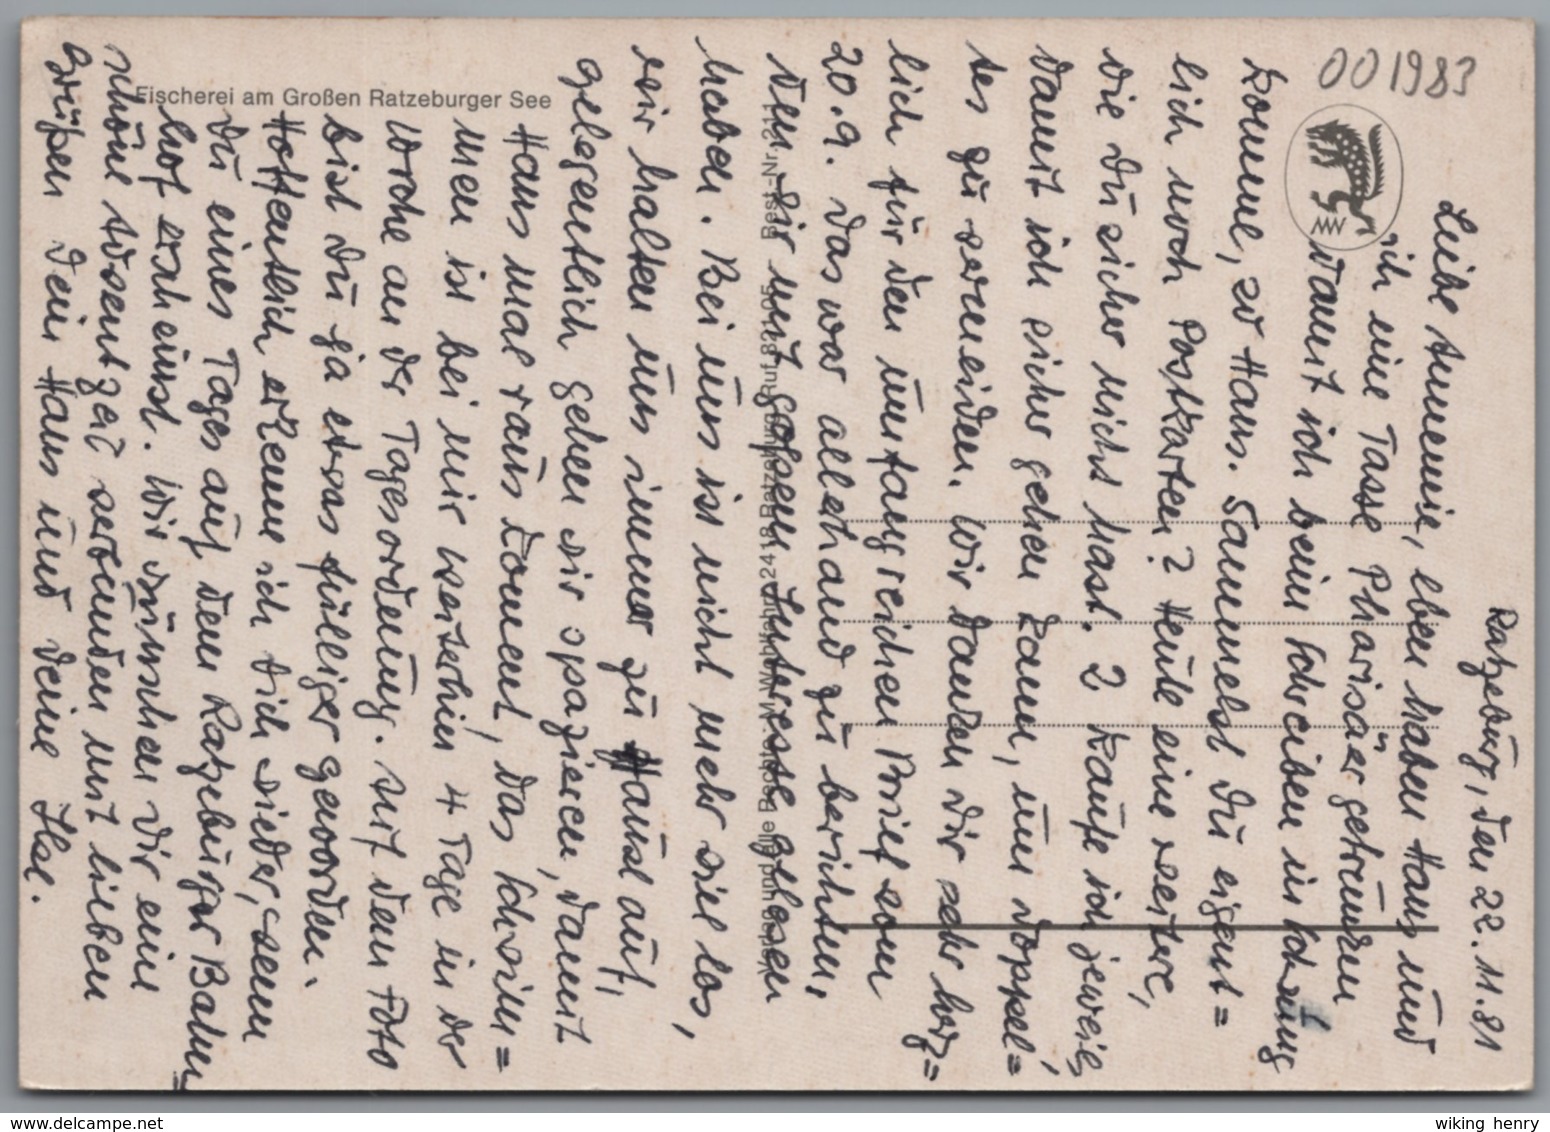 Ratzeburg, den 22.11.81
Liebe Annemie, eben haben Hans und
ich eine Tasse Pharisäer getrunken
damit ich beim Schreiben in Schwung
komme, so Hans. Sammelst Du eigent=
lich noch Postkarten? Heute eine weitere,
die Du sicher nicht hast. 2 kaufe ich jeweils,
damit ich sicher gehen kann, um doppel=
tes zu vermeiden. Wir danken Dir sehr herz=
lich für den umfangreichen Brief vom
20.9. Das war allerhand zu berichten,
den wir mit großem Interesse gelesen
haben. Bei uns ist nicht mehr viel los,
wir halten uns immer zu Hause auf,
gelegentlich gehen wir spazieren, damit
Hans mal raus kommt, das Schwim=
men ist bei mir weiterhin 4 Tage in der
Woche an der Tagesordnung. Auf dem Foto
bist Du ja etwas fülliger geworden.
Hoffentlich erkenne ich Dich wieder, wenn
Du eines Tages auf dem Ratzeburger Bahn
hof erscheinst. Wir wünschen Dir eine
schöne Adventzeit verbunden mit lieben
Grüßen Dein Hans und Deine Ilse.
001983
Fischerei am Großen Ratzeburger See
Best.-Nr. 211
wiking henry
www.delcampe.net